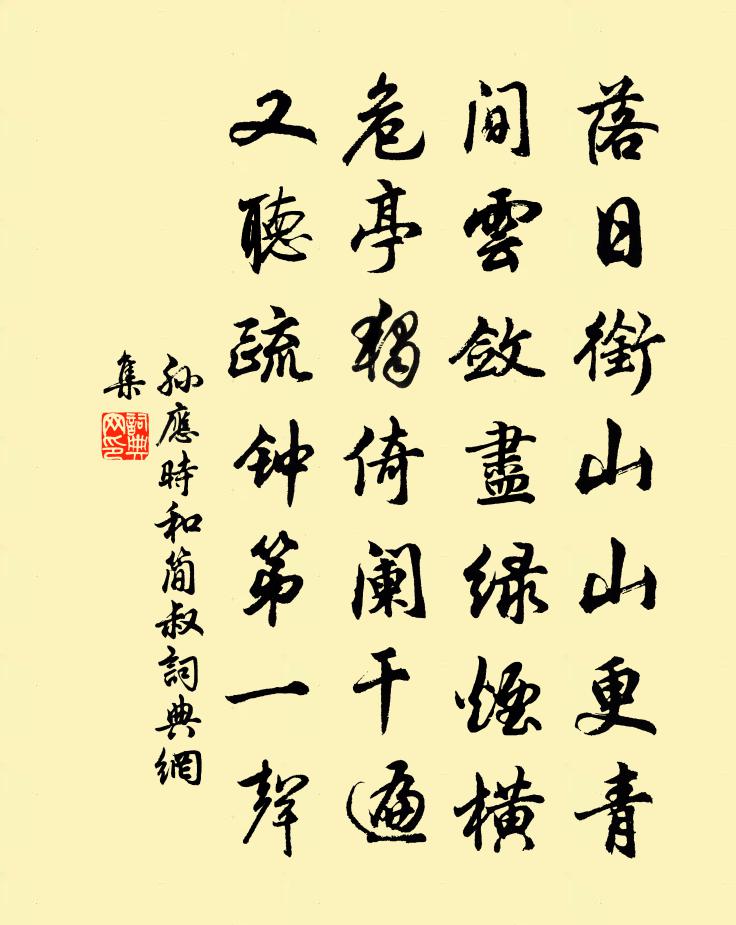 落日銜山山更青
间雲斂盡綠煙橫
危亭獨倚阑干遍
又聽疏钟第一聲
孙應時和简叔詞典網
集
詞典
网印